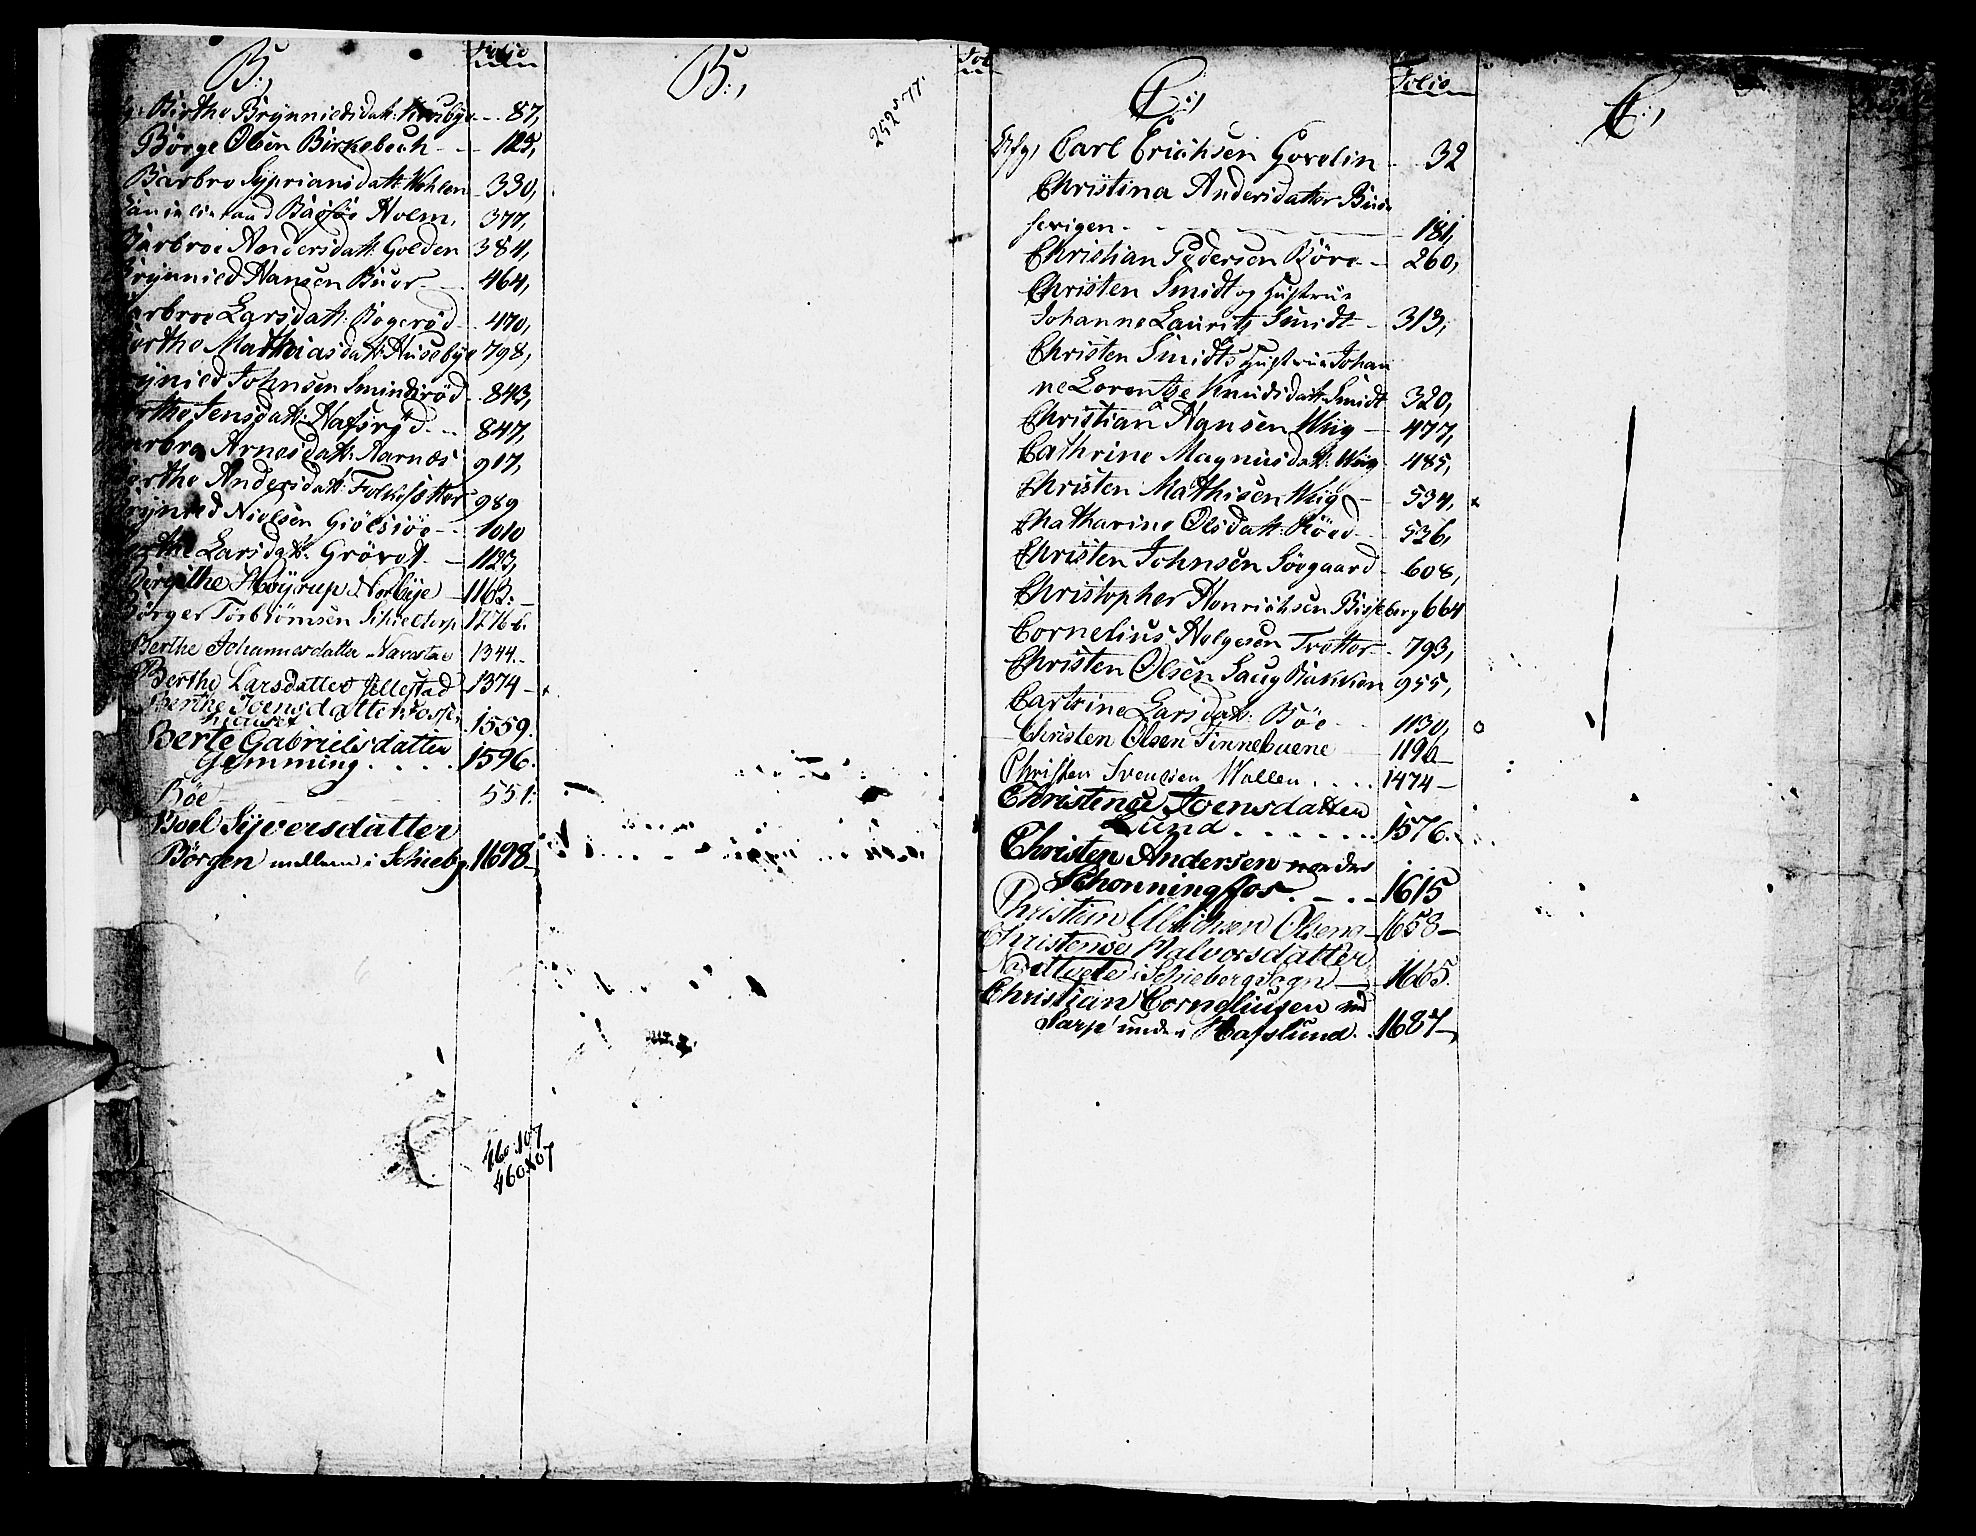 B:,
Folio
Birthe Brynnieldsdatt: Huusbye 87,
Börge Olsen Birkebech 125,
Barbro Sypriansdatt: 330,
Holm, 377,
Barbroe Andersdatt: Golden 384,
Brynnield Hansen Buer 464,
Barbroe Larsdatt: Bögeröd 470,
Berthe Mathiasdatt: Husebye 798,
Brynield Johnsen Smindiröd 843,
Berthe Jensdatt: 847,
Barbra Arnesdatt: Aarnæs 917,
Berthe Andersdatt: Folkesetter 989
Brynield Nielsen Giölsiöe 1010
Berthe Larsdatt: 1123,
Birgithe Høyrup Norbye 1163:
Börger Torbiömsen Schieltorp 1276 b.
Berthe Johannesdatter Navestad 1344.
Berthe Larsdatter Jellestad 1374
Berthe Joensdatter
1559.
Berte Gabrielsdatter
Gemming . . . . 1596.
Böe 551:
Boel Syversdatter
Börgen mellem i Schieberg 1698
460:107
460107
B:,
Fol
252 5 77.
C:,
Folio
Carl Erichsen Govelin 32
Christina Andersdatter Bus
serigen 181,
Christian Pedersen Böre 260,
Christen Smidt og Hustrue
Johanne Lauritz Smidt 313,
Christen Smidts Hustrue Johan
ne Lorentze Knudsdatt: Smidt 320,
Christian Hansen Wiig 477,
Cathrine Magnusdatt: Wiig 485,
Christen Mathisen Wiig 534,
Chatharine Olsdatt: Röed 536,
Christen Johnsen Söegaard 608,
Christopher Henrichsen Bisseberg 664
Cornelius Helgesen Tretter 793,
Christen Olsen Saug Bakken 955,
Cartrine Larsdatt: Böe 1130,
Christen Olsen Tinnebuene 1196
Christen Svendsen Wallen . . . . 1474
Christense Joensdatter
Lund . . . . . . 1576.
Christen Andersen
Schonningfos . . . 1615
Christian Ulrichsen Olsen 1658
Christense Halvorsdatter
i Schieberg Sogn 1665.
Christian Corneliusen ved
Sarpe under Hafslund . 1687
C:,